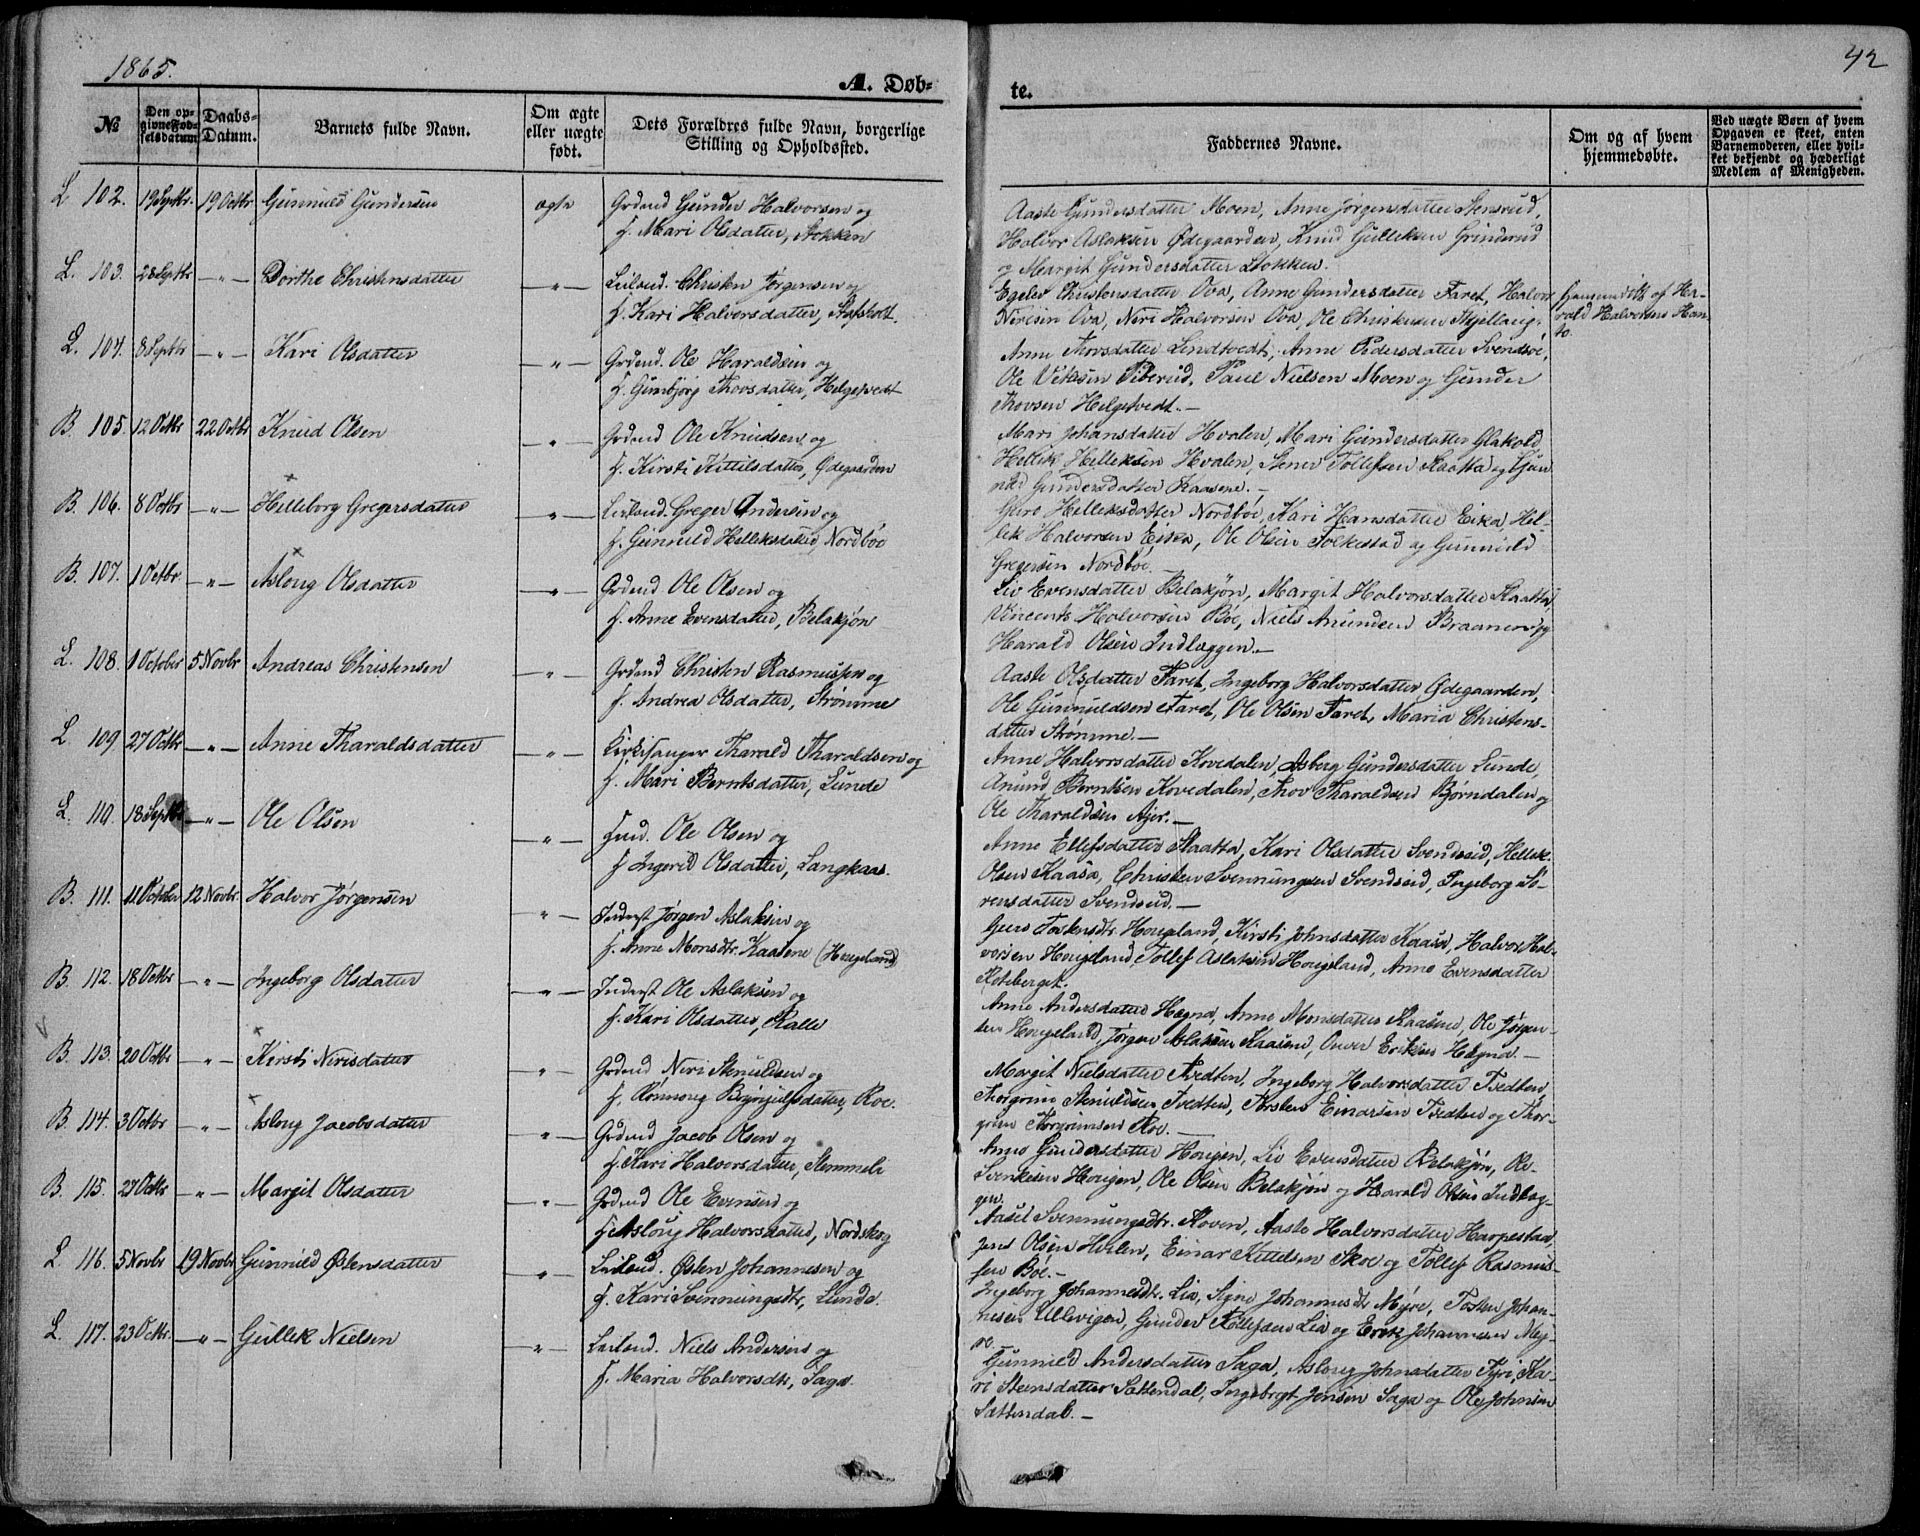 1865.
42
A. Døb-
te.
№
Den op-
givne Fød-
selsdatum
Daabs-
Datum.
Barnets fulde Navn.
Om ægte
eller uægte
født.
Dets Forældres fulde Navn, borgerlige
Stilling og Opholdssted.
Faddernes Navne.
Om og af hvem
hjemmedøbte.
Ved uægte Børn af hvem
Opgaven er skeet, enten
Barnemoderen, eller hvil-
ket bekjendt og hæderligt
Medlem af Menigheden.
L. 102. 19 Septbr. 19 Octbr. Gunnuld Gundersen ægte Grdmd Gunder Halvorsen og
f. Mari Olsdatter, Stokken
Aaste Gundersdatter Moen, Anne Jørgensdatter Stensrud,
Halvor Aslaksen Ødegaarden, Knud Gulleksen Grinderud
og Margit Gundersdatter Stokken.
L. 103. 28 Septbr -"- Dorthe Christensdatter -"- Leiland. Christen Jørgensen og
f. Kari Halvorsdatter, Stafsholt.
Egelev Christensdatter Ova, Anne Gundersdatter Faret, Halvor
Nirisen Ova, Neri Halvorsen Ova, Ole Christensen
hjemmedøbt af Ha-
rald Halvorsen Han-
to.
L. 104. 8 Septbr -"- Kari Olsdatter -"- Grdmd. Ole Haraldsen og
f. Gunbjørg Thovsdatter, Helgetvedt
Anne Thovsdatter Lindtvedt, Anne Pedersdatter Svendsøe,
Ole Paul Nielsen Moen og Gunder
Thovsen Helgetvedt.-
B. 105. 12 Octbr 22 Octbr Knud Olsen -"- Grdmd Ole Knudsen og
f. Kirsti Kittilsdatter, Ødegaarden
Mari Johansdatter Hvalen, Mari Gundersdatter
Hellek Helleksen Hvalen, Stener Tollefsen Slaatta og Gun
nild Gundersdatter Kaasene.-
B. 106. 8 Octbr -"- Helleborg Gregersdatter -"- Leiland. Greger Andersen og
f. Gunnuld Helleksdatter, Nordbøe
Guro Helleksdatter Nordbøe, Kari Hansdatter Eika, Hel-
lek Halvorsen Eika, Ole Olsen Folkestad og Gunnuld
Gregersen Nordbøe.
B. 107. 1 Octbr. -"- Asloug Olsdatter -"- Grdmd Ole Olsen og
f. Anne Evensdatter, Belakjøn
Liv Evensdatter Belakjøn, Margit Halvorsdatter Slaatta
Vincents Halvorsen Bøe, Niels Anundsen Braanen og
Harald Olsen Indlæggen.-
L. 108. 1 October 5 Novbr Andreas Christensen -"- Grdmd Christen Rasmussen og
f. Andrea Olsdatter, Strømme
Aaste Olsdatter Faret, Ingeborg Halvorsdatter Ødegaarden,
Ole Gunnuldsen Faret, Ole Olsen Faret, Maria Christens-
datter Strømme.-
L. 109 27 Octbr -"- Anne Tharaldsdatter -"- Kirkesanger Tharald Tharaldsen og
f. Mari Berntsdatter, Lunde
Anne Halvorsdatter Kovedalen, Asberg Gundersdatter Lunde,
Anund Berntsen Kovedalen, Thov Tharaldsen Bjørndalen og
Ole Tharaldsen Ajer.-
L. 110. 18 Septbr -"- Ole Olsen -"- Ole Olsen og
f. Ingerid Olsdatter, Langkaas.
Anne Ellefsdatter Slaatta, Kari Olsdatter Svendseid, Hellek
Olsen Kaasa, Christen Svennungsen Svendseid, Ingeborg Sø-
rensdatter Svendseid.-
B. 111. 11 October 12 Novbr. Halvor Jørgensen -"- Inderst Jørgen Aslaksen og
f. Anne Monsdtr. Kaasene (Hougeland)
Guro Hougeland, Kirsti Johnsdatter Kaasa, Halvor Hal-
vorsen Hougeland, Tollef Aslaksen Hougeland, Anne Evensdatter
Roteberget.
B. 112. 18 Octbr -"- Ingeborg Olsdatter -"- Inderst Ole Aslaksen og
f. Kari Olsdatter, Kalle
Anne Andersdatter Hegna, Anne Monsdatter Kaasene, Ole Jørgen-
sen Hougeland, Jørgen Aslaksen Kaasene, Onver Eriksen Hegna.-
B. 113. 20 Octbr -"- Kirsti Nirisdatter -"- Grdmd Neri Stenuldsen og
f. Rønnoug Brynjulfsdatter, Roe.
Margit Nielsdatter Tvedten, Ingeborg Halvorsdatter Tvedten,
Thorgrim Stenuldsen Tvedten, Torsten Einarsen Tvedten og Thor-
grim Thorgrimsen Roe.-
B. 114. 3 Octbr -"- Asloug Jacobsdatter -"- Grdmd Jacob Olsen og
f. Kari Halvorsdatter, Stemmeli
Anne Gundersdatter Hougen, Liv Evensdatter Belakjøn, Ole
Svenkesen Hougen, Ole Olsen Belakjøn og Harald Olsen Indlæg-
gen.
B. 115. 27 Octbr -"- Margit Olsdatter -"- Grdmd Ole Evensen og
f. Asloug Halvorsdatter, Nordskog
Aasel Svennungsdtr. Hoven, Aaste Halvorsdatter Harpestad,
Jens Olsen Hvilen, Einar Kittelsen Skoe og Tollef Rasmus-
sen Bøe.-
L. 116. 5 Novbr 19 Novbr Gunnild Østensdatter -"- Leiland. Østen Johannesen og
f. Kari Svennungsdtr, Lunde.
Ingeborg Johannesdtr. Lia, Signe Johannesdtr Myre, Tosten Johan-
nesen Ullevigen, Gunder Tollefsen Lia og Erik Johannesen My-
re.
L. 117. 23 Octbr. -"- Gullek Nielsen -"- Leiland. Niels Andersen og
f. Maria Halvorsdtr, Saga.
Gunnild Andersdatter Saga, Aslaug Johnsdatter Fyri, Ka-
ri Steensdatter Sattendal, Ingebregt Jensen Saga og Ole Johnsen
Sattendal.-